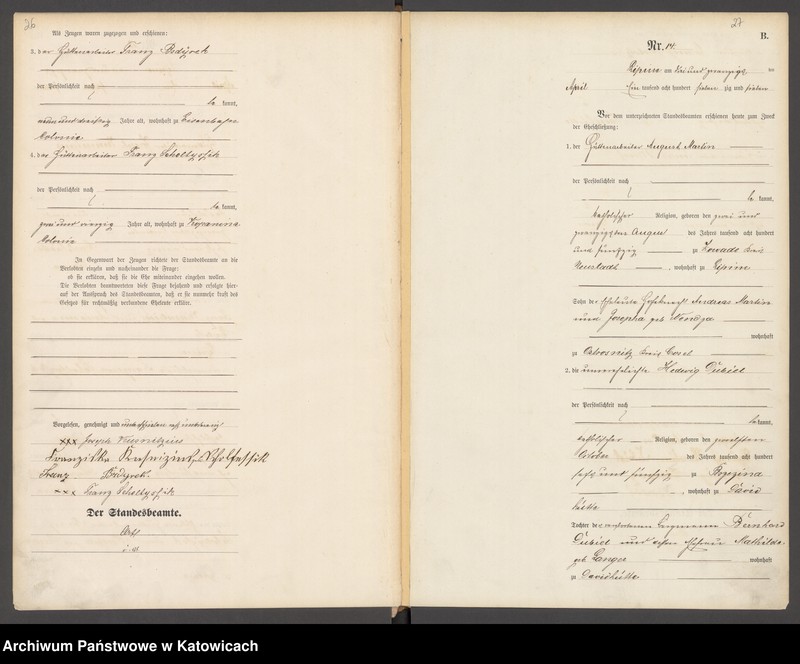 26
Als Zeugen waren zugezogen und erschienen:
3. der Hüttenarbeiter Franz Bodyrek
der Persönlichkeit nach
be kannt,
neun und dreißig Jahre alt, wohnhaft zu
Colonie
4. der Hüttenarbeiter Franz
der Persönlichkeit nach
be kannt,
zwei und vierzig Jahre alt, wohnhaft zu
Colonie
In Gegenwart der Zeugen richtete der Standesbeamte an die
Verlobten einzeln und nacheinander die Frage:
ob sie erklären, daß sie die Ehe miteinander eingehen wollen.
Die Verlobten beantworteten diese Frage bejahend und erfolgte hier-
auf der Ausspruch des Standesbeamten, daß er sie nunmehr kraft des
Gesetzes für rechtmäßig verbundene Eheleute erkläre.
Vorgelesen, genehmigt und
xxx Joseph
Franziska
Franz Bodyrek.
xxx Franz
Der Standesbeamte.
27
B.
Nr. 14.
Lipine am drei und zwanzigsten
April Ein tausend acht hundert sieben zig und sieben
Vor dem unterzeichneten Standesbeamten erschienen heute zum Zweck
der Eheschließung:
1. der Hüttenarbeiter August Martin
der Persönlichkeit nach
be kannt,
katholischer Religion, geboren den zwei und
zwanzigsten August des Jahres tausend acht hundert
und fünfzig zu Zowade Kreis
Neustadt, wohnhaft zu Lipine
Sohn der Eheleute Andreas Martin
und Josepha geb.
wohnhaft
zu Ostrosnitz, Kreis Cosel
2. die unverehelichte Hedwig Dubiel
der Persönlichkeit nach
be kannt,
katholischer Religion, geboren den zwölften
October des Jahres tausend acht hundert
sechs und fünfzig zu
, wohnhaft zu David
hütte
Tochter des verstorbenen Bergmann Bernhard
Dubiel und dessen Ehefrau Mathilde
geb. Langer wohnhaft
zu Davidhütte
Archiwum Państwowe w Katowicach